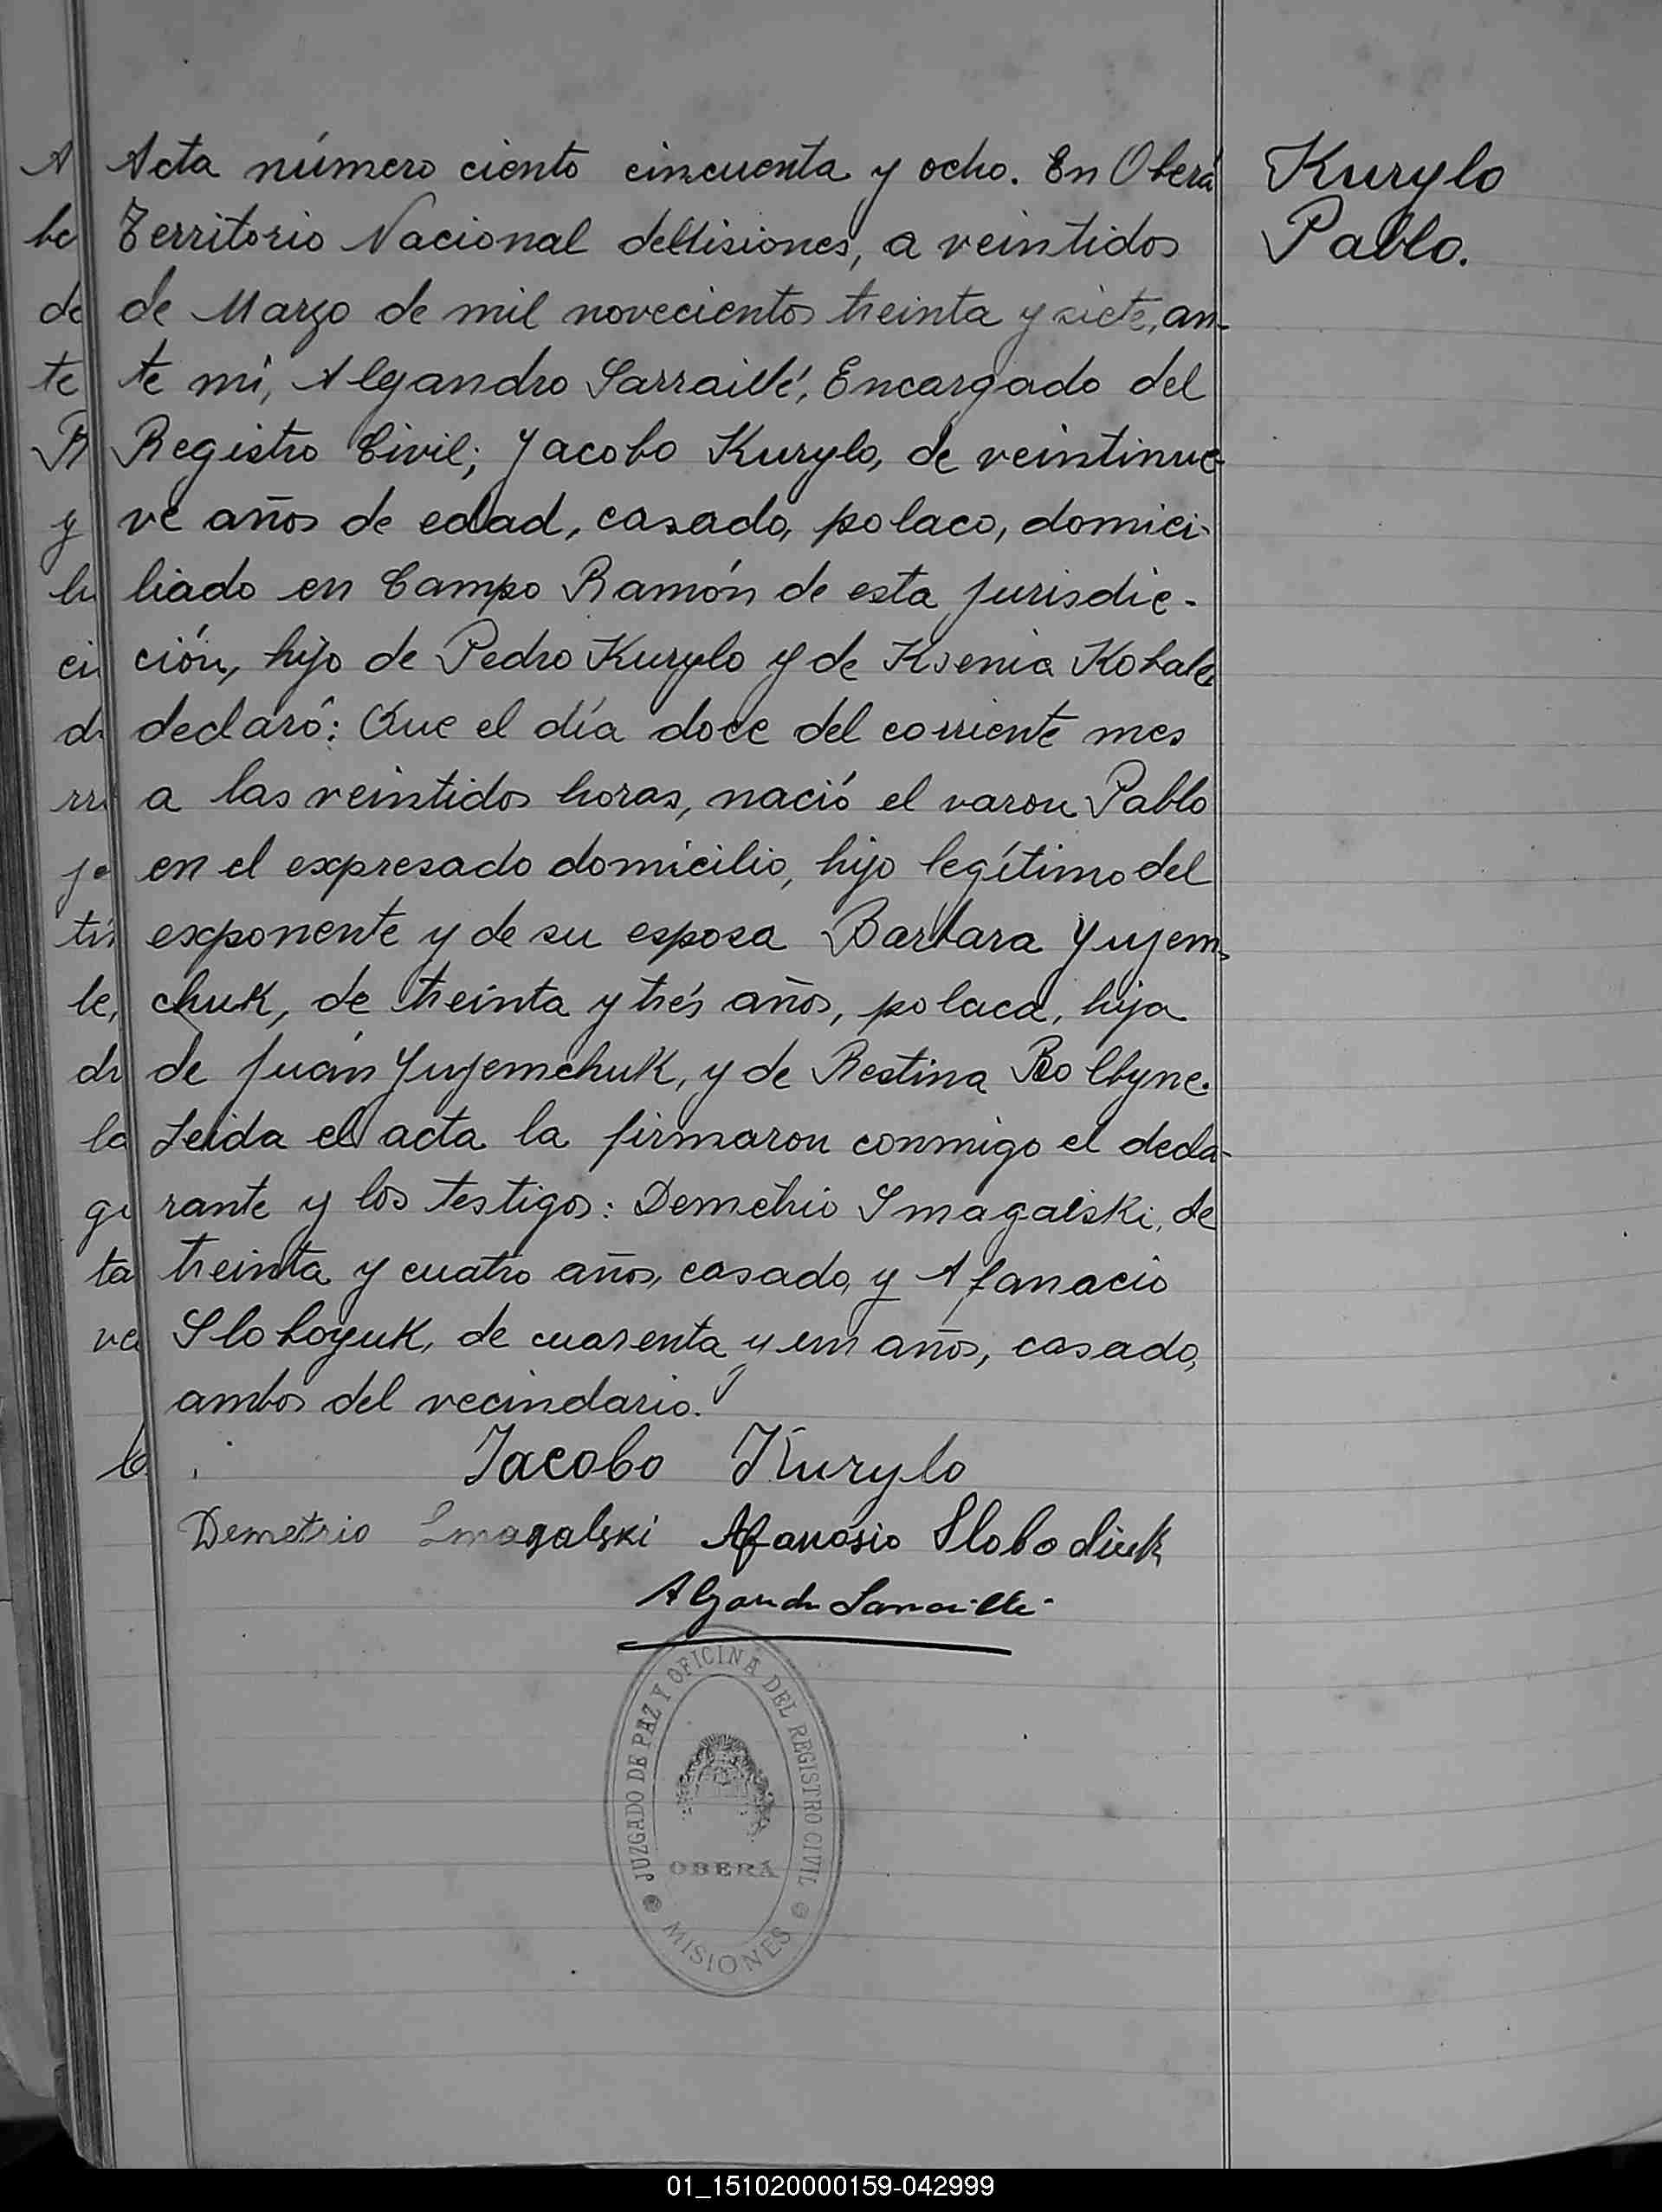 Acta número ciento cincuenta y ocho. En Oberá
Territorio Nacional de Misiones, a veintidos
de Marzo de mil novecientos treinta y siete, an-
te mí, Alejandro Sarraillé, Encargado del
Registro Civil; Jacobo Kurylo, de veintinue-
ve años de edad, casado, polaco, domici-
liado en Campo Ramón de esta jurisdic-
ción, hijo de Pedro Kurylo y de Ksenia
declaró: Que el día doce del corriente mes
a las veintidos horas, nació el varon Pablo
en el expresado domicilio, hijo legítimo del
exponente y de su esposa Barbara Yujem-
chuk, de treinta y trés años, polaca, hija
de Juan Yujemchuk, y de Restina
Leida el acta la firmaron conmigo el decla-
rante y los testigos: Demetrio Smagalski, de
treinta y cuatro años, casado, y Afanacio
Sloboyuk, de cuarenta y un años, casado,
ambos del vecindario.
Jacobo Kurylo
Demetrio Smagalski Afanasio Slobodiuk
Alejandro Sarraillé
JUZGADO DE PAZ Y OFICINA DEL REGISTRO CIVIL
OBERÁ
MISIONES
Kurylo
Pablo.
A
be
de
te
R
y
ci
d
ta
ve
01_151020000159-042999